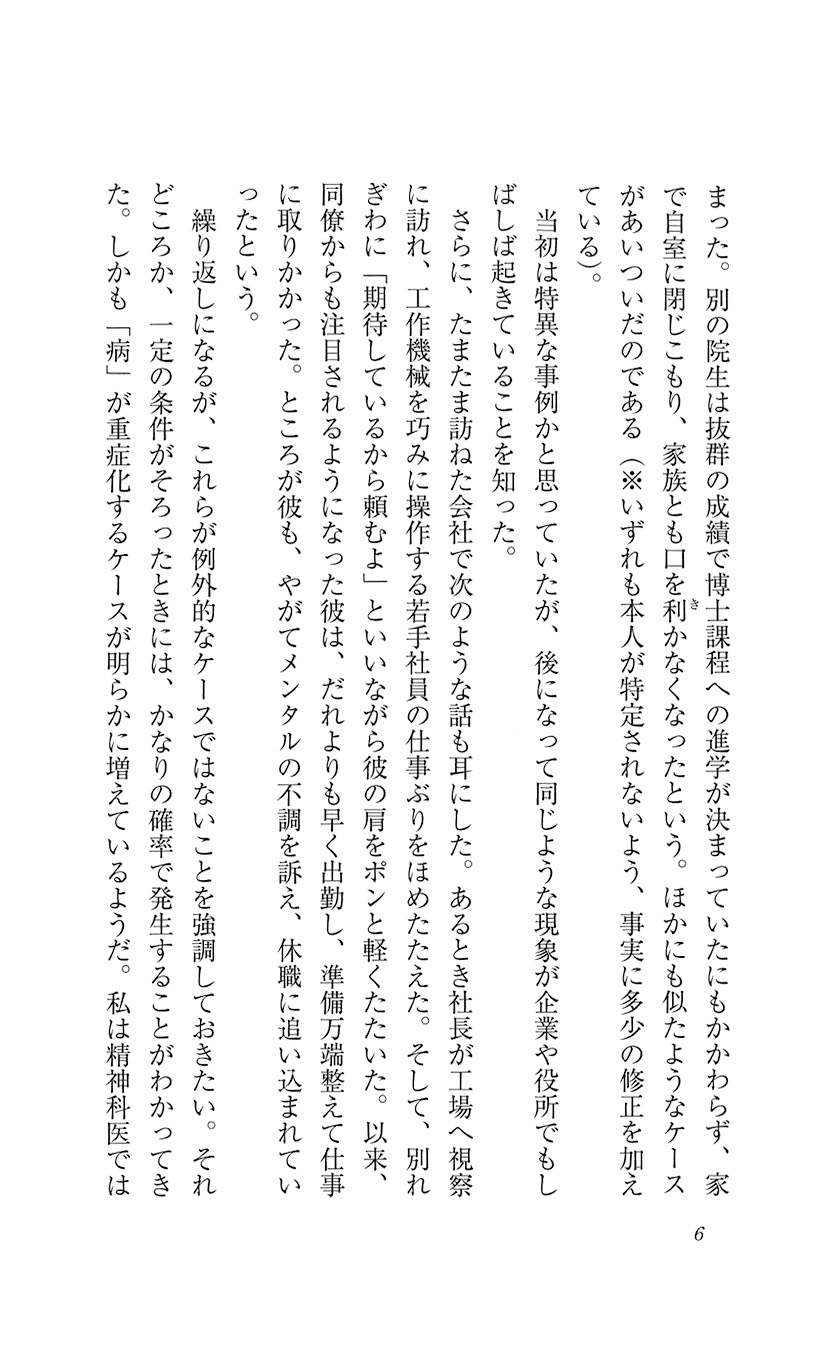 まった。別の院生は抜群の成績で博士課程への進学が決まっていたにもかかわらず、家
で自室に閉じこもり、家族とも口を利かなくなったという。ほかにも似たようなケース
があいついだのである（※いずれも本人が特定されないよう、事実に多少の修正を加え
ている）。
当初は特異な事例かと思っていたが、後になって同じような現象が企業や役所でもし
ばしば起きていることを知った。
さらに、たまたま訪ねた会社で次のような話も耳にした。あるとき社長が工場へ視察
に訪れ、工作機械を巧みに操作する若手社員の仕事ぶりをほめたたえた。そして、別れ
ぎわに「期待しているから頼むよ」といいながら彼の肩をポンと軽くたたいた。以来、
同僚からも注目されるようになった彼は、だれよりも早く出勤し、準備万端整えて仕事
に取りかかった。ところが彼も、やがてメンタルの不調を訴え、休職に追い込まれてい
ったという。
繰り返しになるが、これらが例外的なケースではないことを強調しておきたい。それ
どころか、一定の条件がそろったときには、かなりの確率で発生することがわかってき
た。しかも「病」が重症化するケースが明らかに増えているようだ。私は精神科医では
き
6